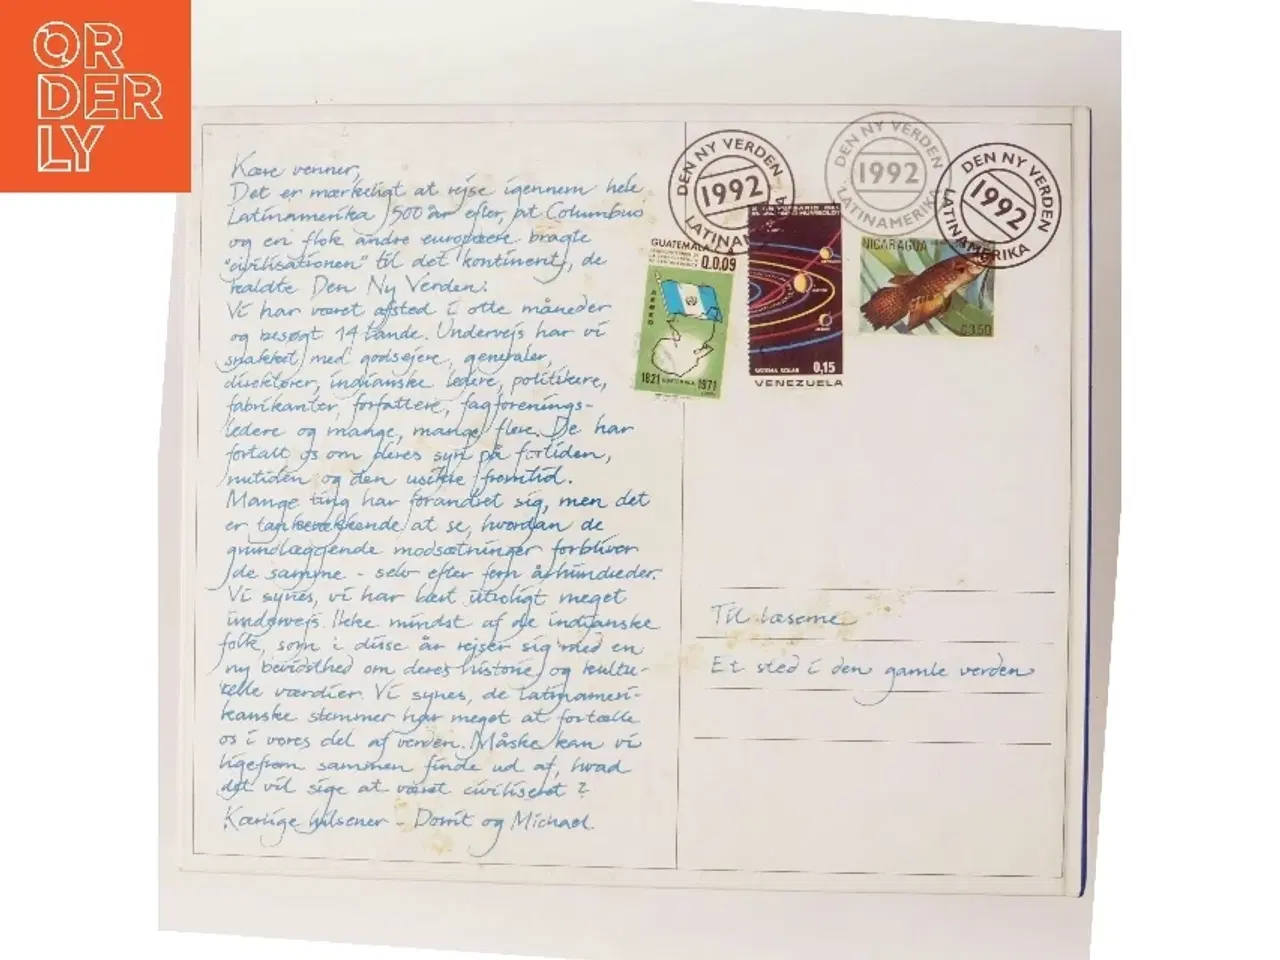 OR
DER
LY
Kære venner,
Det er mærkeligt at rejse igennem hele
Latinamerika 500 år efter, at Columbus
og en flok andre europæere bragte
"civilisationen" til det kontinent, de
kaldte Den Ny Verden.
Vi har været afsted i otte måneder
og besøgt 14 lande. Undervejs har vi
snakket med godsejere, generaler,
direktører, indianske ledere, politikere,
fabrikanter, forfattere, fagforenings-
ledere og mange, mange flere. De har
fortalt os om deres syn på fortiden,
nutiden og den usikre fremtid.
Mange ting har forandret sig, men det
er tankevækkende at se, hvordan de
grundlæggende modsætninger forbliver
de samme - selv efter fem århundreder.
Vi synes, vi har lært utroligt meget
undervejs. Ikke mindst af de indianske
folk, som i disse år rejser sig med en
ny bevidsthed om deres historie og kultu-
relle værdier. Vi synes, de latinameri-
kanske stemmer har meget at fortælle
os i vores del af verden. Måske kan vi
ligefrem sammen finde ud af, hvad
det vil sige at være civiliseret?
Kærlige hilsener - Dorrit og Michael
DEN NY VERDEN
1992
LATINAMERIKA
DEN NY VERDEN
1992
LATINAMERIKA
DEN NY VERDEN
1992
LATINAMERIKA
GUATEMALA
Q.0.09
AEREO
1821 1971
SISTEMA SOLAR 0,15
VENEZUELA
NICARAGUA
C3.50
Til læserne
Et sted i den gamle verden